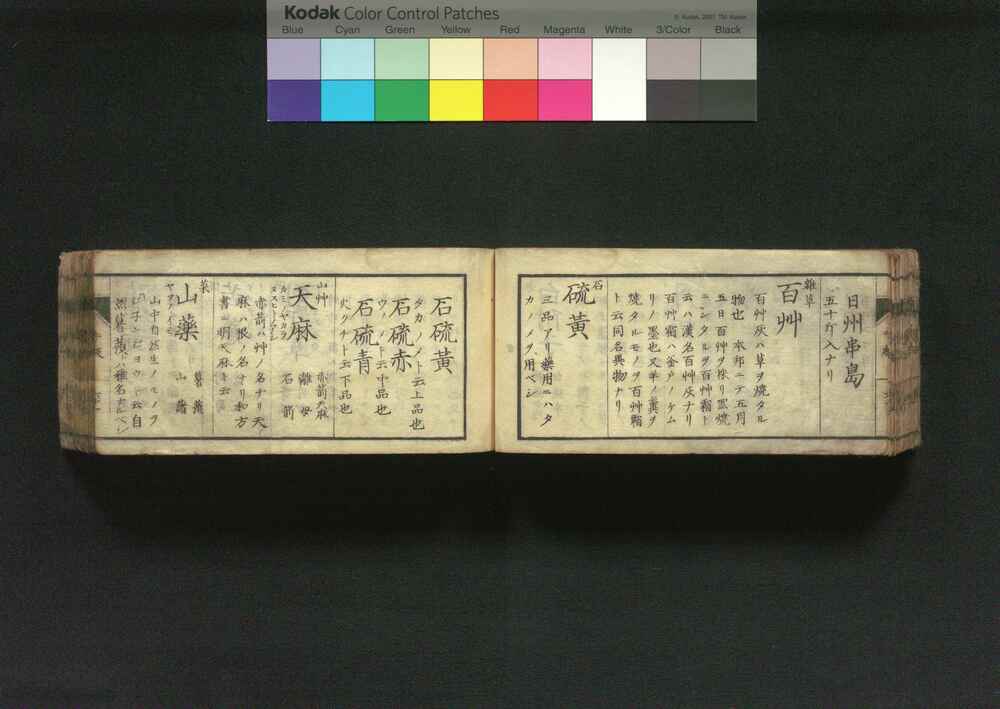 Kodak Color Control Patches
© Kodak, 2007 TM: Kodak
Blue Cyan Green Yellow Red Magenta White 3/Color Black
日州串島
五十町入ナリ
雜草
百艸
百艸灰ハ草ヲ燒タル
物也 本邦ニテ五月
五日百艸ヲ採リ黒燒
ニシタルヲ百艸霜ト
云ハ漢名百艸灰ナリ
百艸霜ハ釜ノ
リノ墨也又羊ノ糞ヲ
燒タルモノヲ百艸霜
ト云同名異物ナリ
石
硫黄
三品アリ藥用ニハタ
カノメヲ用ベシ
石硫黄
タカノメト云上品也
石硫赤
ウノメト云中品也
石硫青
火クチト云下品也
山艸
天麻
赤箭天麻
離母
石箭
ヌスビトノアシ
赤箭ハ艸ノ名ナリ天
麻ハ根ノ名ナリ和方
書ニ明天麻ト云
菜
山藥
ヤマノイモ
薯蕷
山藷
山中自然生ノモノヲ
云自